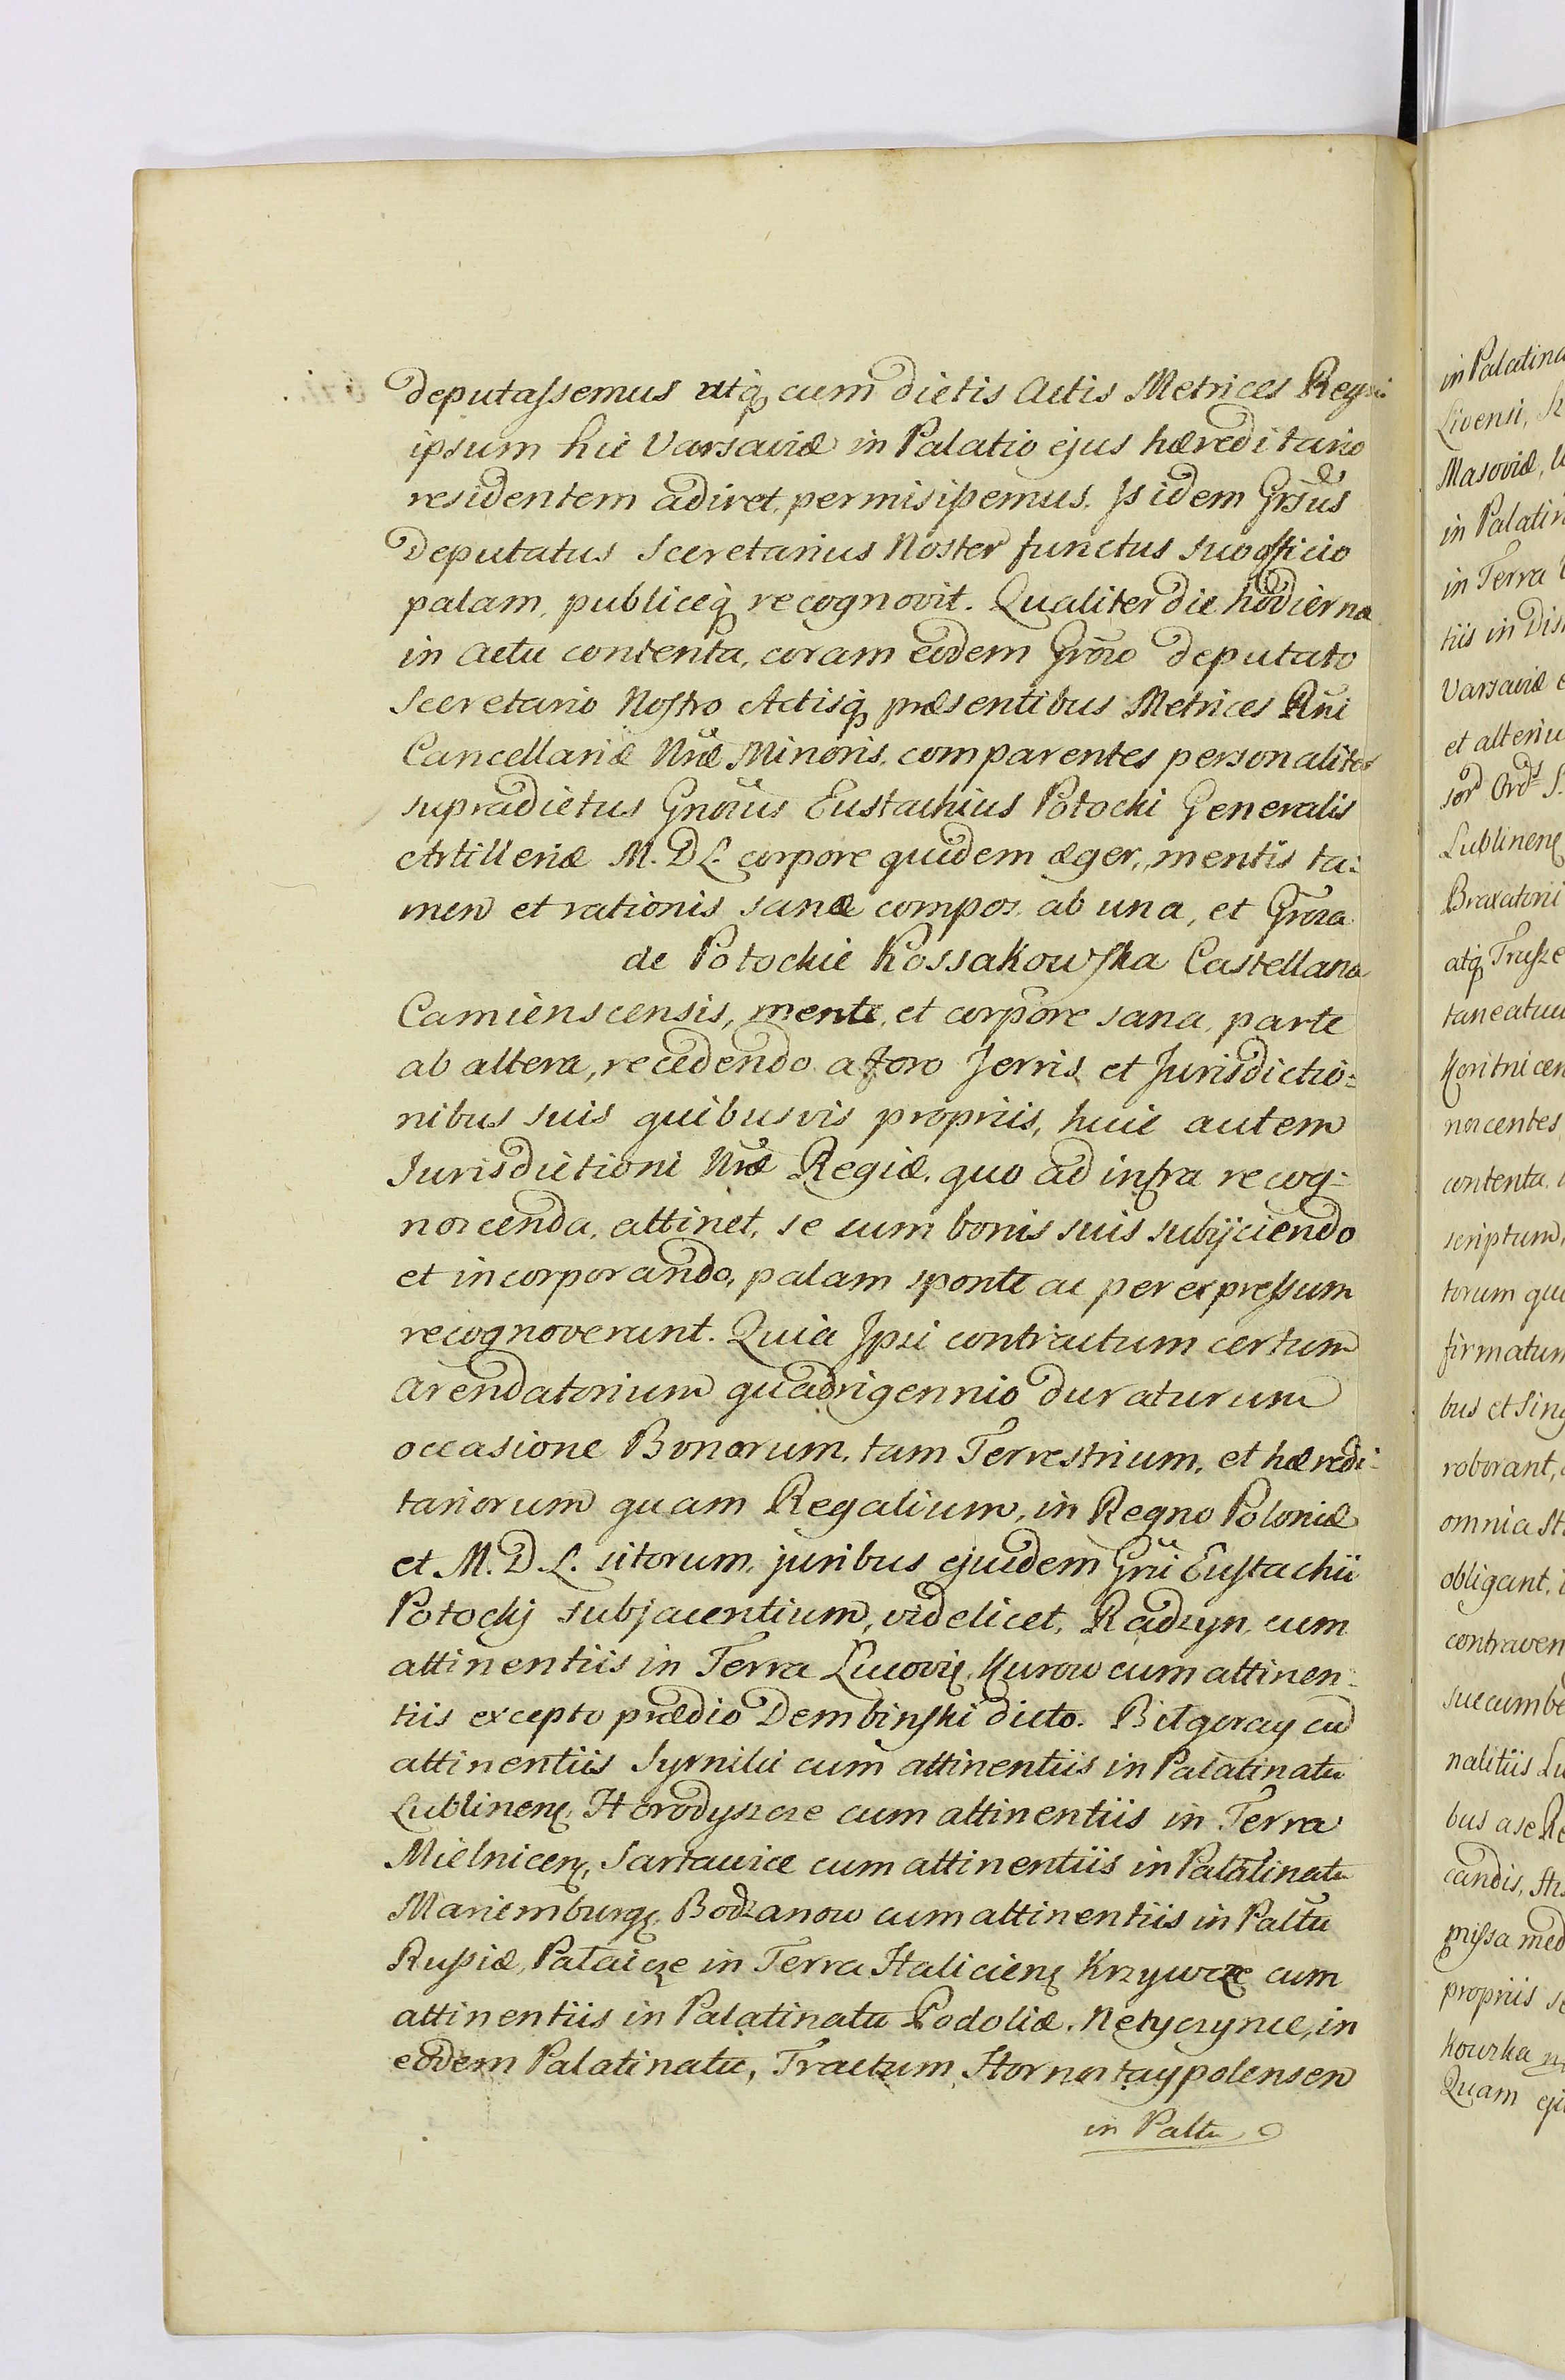 deputassemus utq cum dictis Actis Metrices Regni
ipsum hic Varsaviæ in Palatio ejus hæreditario
residentem adiret, permisissemus. Is idem Grsus
deputatus Secretarius Noster functus suo officio
palam, publiceq recognovit. Qualiter die hodierna
in actu contenta, coram eodem Groso deputato
Secretario Nostro Actisq præsentibus Metrices Rni
Cancellariæ Nræ Minoris, comparentes personaliter
supradictus Gnosus Eustachius Potocki Generalis
Artilleriæ M. D L. corpore quidem æger, mentis ta:
men et rationis sanæ compos, ab una, et Grosa
de Potockie Kossakowska Castellana
Camienscensis, mente, et corpore sana, parte
ab altera, recedendo a foro Jerris et Jurisdictio:
nibus suis quibusvis propriis, huic autem
Jurisdictioni Nræ Regiæ, quo ad infra recog:
noscenda, attinet, se cum bonis suis subijciendo
et incorporando, palam sponte ac per expressum
recognoverunt. Quia Ipsi contractum certum
arendatorium quadrigennio duraturum
occasione Bonorum, tam Terrestrium, et hæredi:
tariorum quam Regalium, in Regno Poloniæ
et M. D. L. sitorum, juribus ejusdem Gni Eustachii
Potockij subjacentium, videlicet, Radzyn, cum
attinentiis in Terra Lucovię, Kurow cum attinen:
tiis excepto prædio Dembinski dicto. Bilgoray cu
attinentiis Syrniki cum attinentiis in Palatinatu
Lublinenę, Horodyszcze cum attinentiis in Terra
Mielnicenę, Sartavice cum attinentiis in Palatinatu
Mariemburgę, Bodzanow cum attinentiis in Paltu
Russiæ, Pataicze in Terra Halicienę Krzywcze cum
attinentiis in Palatinatu Podoliæ. Netyczynce, in
eodem Palatinatu, Tractum Hornostaypolensem
in Paltu
in Palatina
Livensi,
Masoviæ,
in Palatin
in Terra
tiis in Dis
Varsaviæ
et alteriu
Lublinenę
Braxatorii
atq Trusze
taneatuu
noscentes
contenta
scriptum,
torum qui
firmatum
bus et Sing
roborant,
omnia
obligant,
contraven
succumbe
nalitiis Lu
bus a se Re
candis,
missa med
propriis
kowska
Quam eju